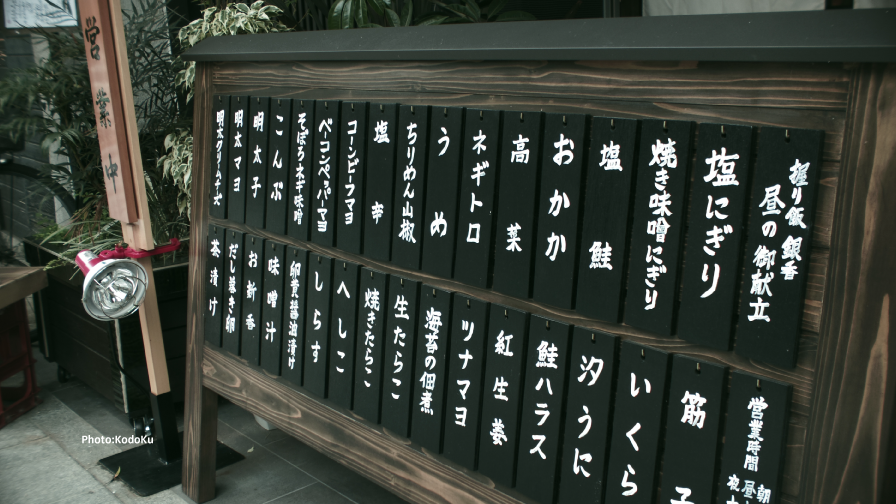 握り飯 銀香
昼の御献立
塩にぎり
焼き味噌にぎり
塩鮭
おかか
高菜
ネギトロ
うめ
ちりめん山椒
塩辛
コーンビーフマヨ
ベーコンペッパーマヨ
そぼろネギ味噌
こんぶ
明太子
明太マヨ
明太クリームチーズ
営業時間
朝
昼
夜
筋子
いくら
汐うに
鮭ハラス
紅生姜
ツナマヨ
海苔の佃煮
生たらこ
焼きたらこ
へしこ
しらす
卵黄醤油漬け
味噌汁
お新香
だし巻き卵
茶漬け
営業中
Photo:KodoKu